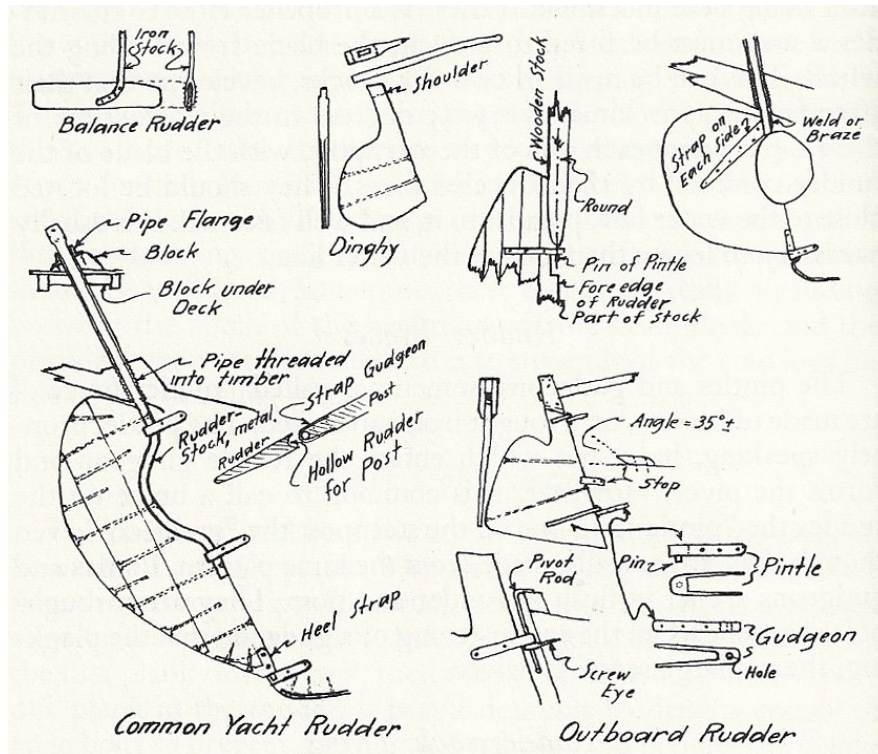 Iron
Stock
Balance Rudder
Shoulder
Dinghy
Wooden Stock
Round
Pin of Pintle
Fore edge
of Rudder
Part of Stock
Strap on
each side
Weld or
Braze
Pipe Flange
Block
Block under
Deck
Pipe threaded
into timber
Rudder-
Stock, metal.
Strap
Gudgeon
Post
Rudder
Hollow Rudder
for Post
Heel Strap
Common Yacht Rudder
Angle = 35°±
Stop
Pin
Pintle
Pivot
Rod
Gudgeon
Hole
Screw
Eye
Outboard Rudder